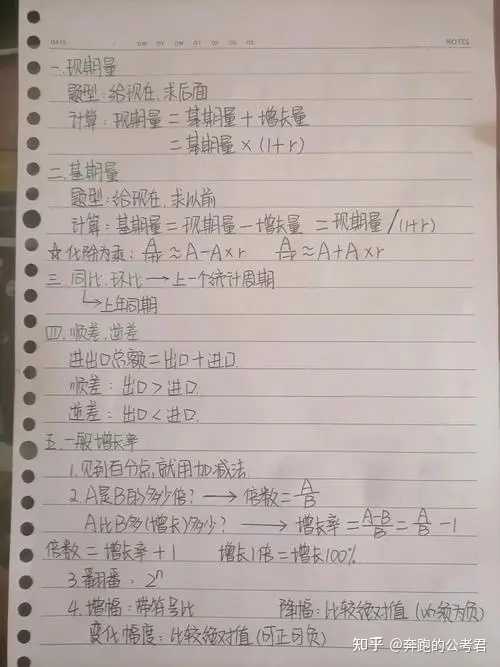 NOTES
一.现期量
题型:给现在,求后面
计算:现期量=基期量+增长量
=基期量×(1+r)
二.基期量
题型:给现在,求以前
计算:基期量=现期量-增长量 =现期量/(1+r)
☆化除为乘: ≈A-A×r ≈A+A×r
三.同比,环比→上一个统计周期
↳上年同期
四.顺差,逆差
进出口总额=出口+进口
顺差:出口>进口.
逆差:出口<进口.
五.一般增长率
1.见到百分点,就用加减法
2.A是B的多少倍?→倍数=A/B
A比B多(增长)多少?→增长率=(A-B)/B=A/B-1
倍数=增长率+1 增长1倍=增长100%
3.翻番:2ⁿ
4.增幅:带符号比 降幅:比较绝对值(必须为负)
变化幅度:比较绝对值(可正可负)
知乎 @奔跑的公考君